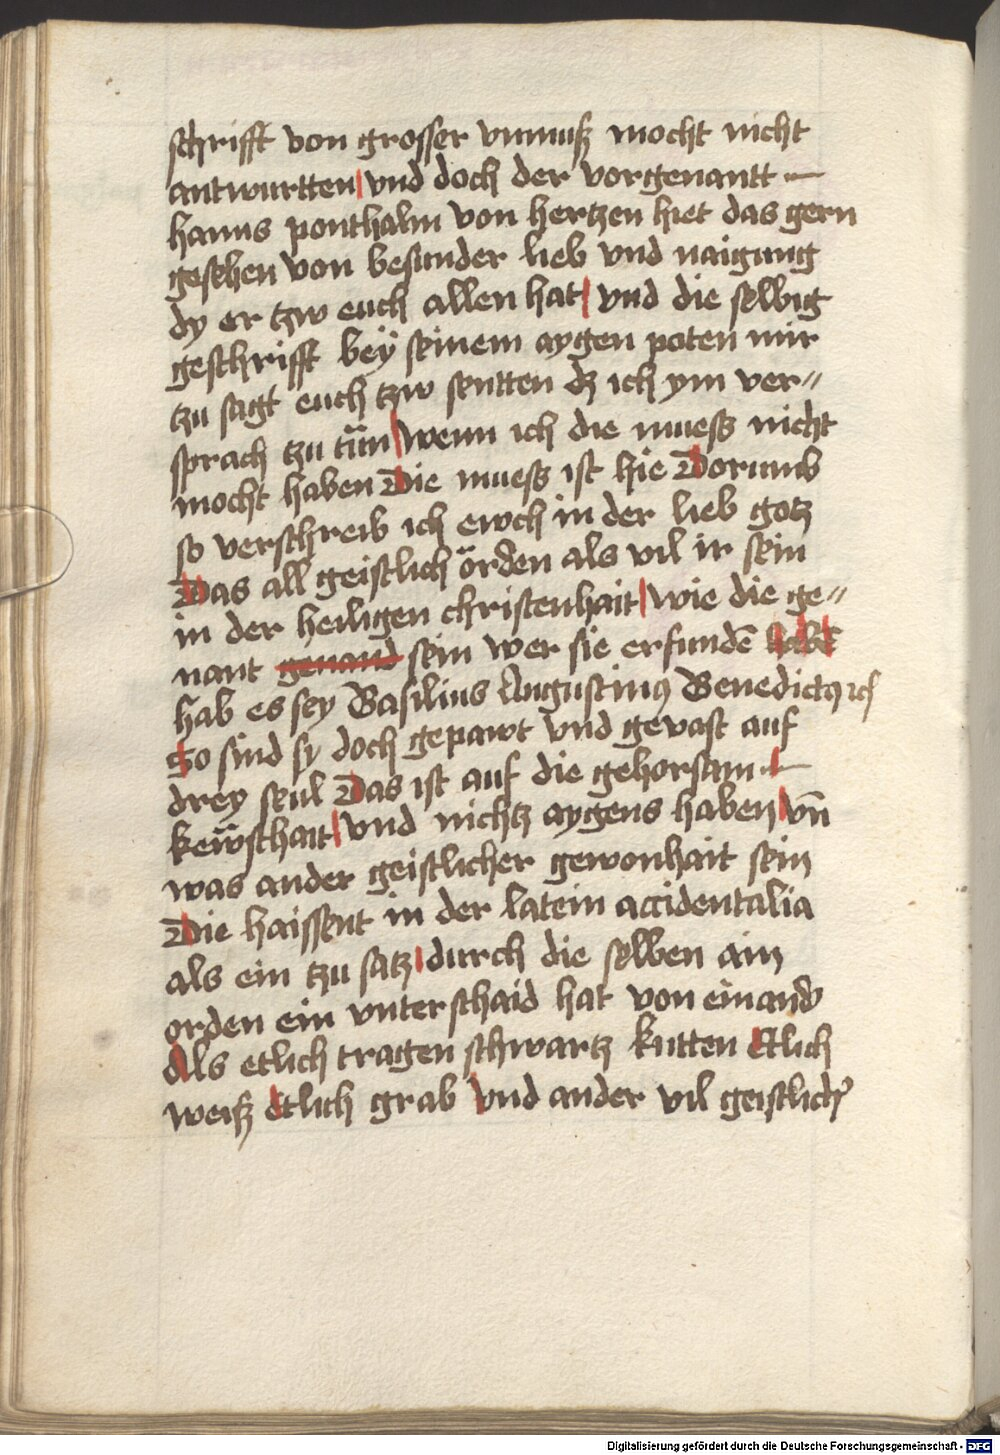 schrifft von grosser vnmuß mocht nicht
antwurtten vnd doch der vorgenantt
hanns ponthalm von hertzen hiet das gern
gesehen von besunder lieb vnd naigung
dy er tzw euch allen hat vnd die selbig
geschrifft bëy seinem aygen poten mir
tzu sagt euch tzw senntten dz ich ym ver〃
sprach tzu tün wenn ich die muess nicht
mocht haben Die muess ist hie Dorumb
so verschreib ich ewch in der lieb gotz
Das all geistlich örden als vil ir sein
in der heiligen christenhait wie die ge〃
nant genand sein wer sie erfundē habē
hab es sey Basilius Augustinꝰ Benedictꝰ ich
So sind sy doch gepawt vnd gevast auf
drey seul Das ist auf die gehorsam
kewsthait vnd nichtz aygens haben vn̄
was ander geistlicher gewonhait sein
Die haissent in der latein accidentalia
als ein tzu satz durch die selben ain
orden ein vnterschaid hat von einand
Als etlich tragen schwartz kutten Etlich
weiß Etlich grab vnd ander vil geistlich
Digitalisierung gefördert durch die Deutsche Forschungsgemeinschaft - DFG